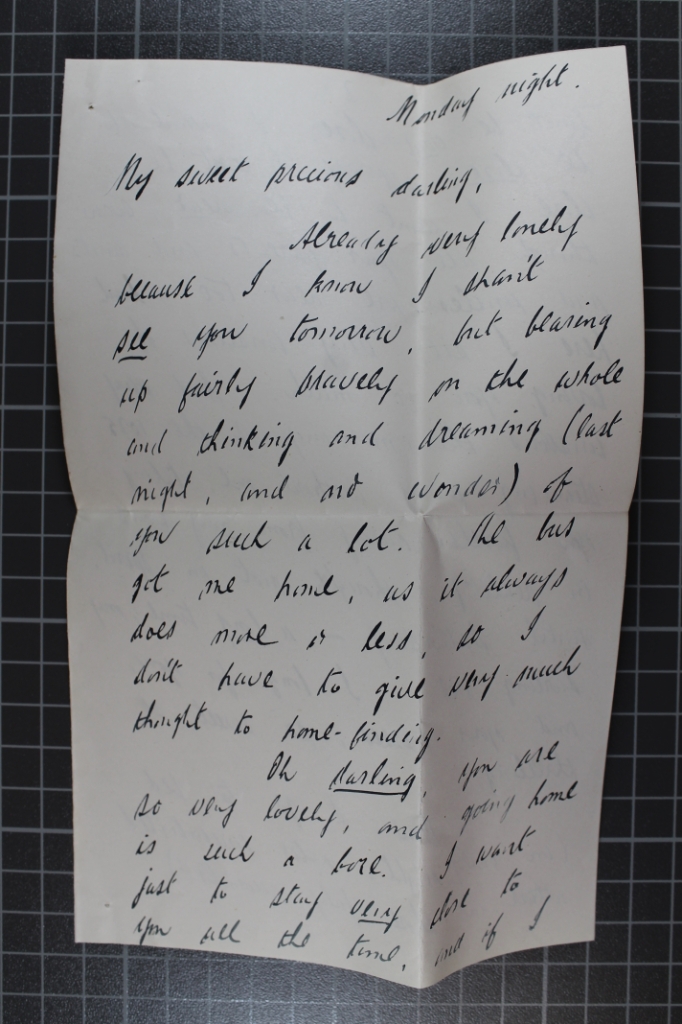 Monday night.
My sweet precious darling,
Already very lonely
because I know I shan't
see you tomorrow, but bearing
up fairly bravely on the whole
and thinking and dreaming (last
night, and no wonder) of
you such a lot. The bus
got me home, as it always
does more or less, so I
don't have to give very much
thought to home-finding.
Oh darling, you are
so very lovely, and going home
is such a bore. I want
just to stay very close to
you all the time, and if I